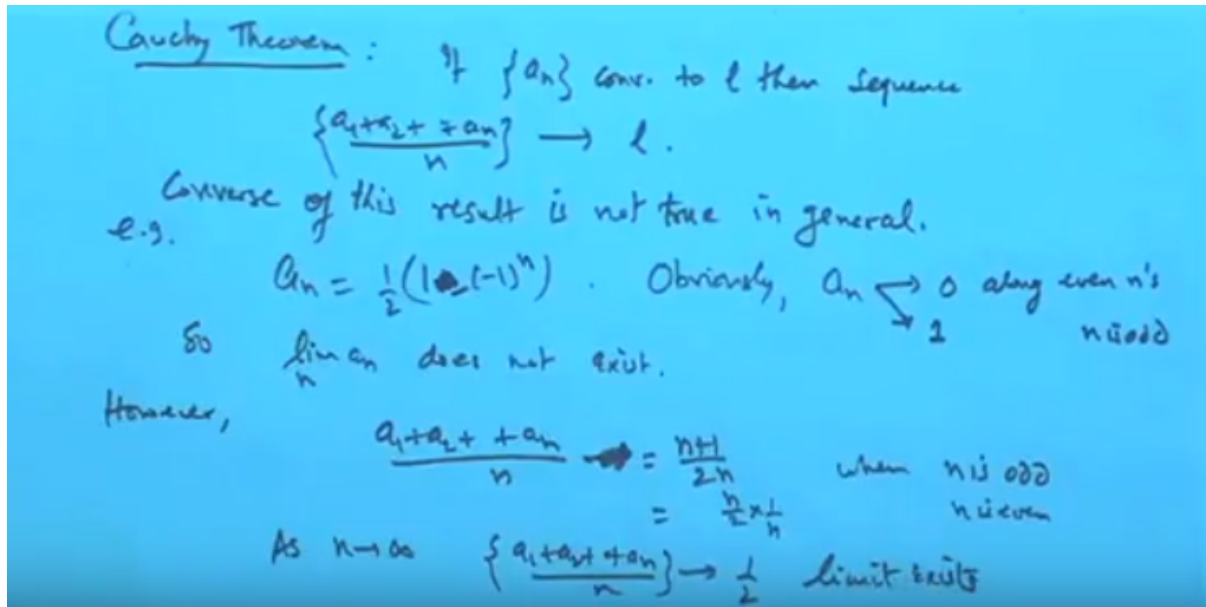 Cauchy Theorem : If {an} conv. to l then sequence
{a1+a2+ +an/n} → l.
Converse of this result is not true in general.
e.g.
an = 1/2(1-(-1)^n) . Obviously, an → 0 along even n's
→ 1 n is odd
So lim an does not exist.
n
However,
a1+a2+ +an/n = n+1/2n when n is odd
= n/2 × 1/n n is even
As n→∞ {a1+a2+ +an/n} → 1/2 limit exists